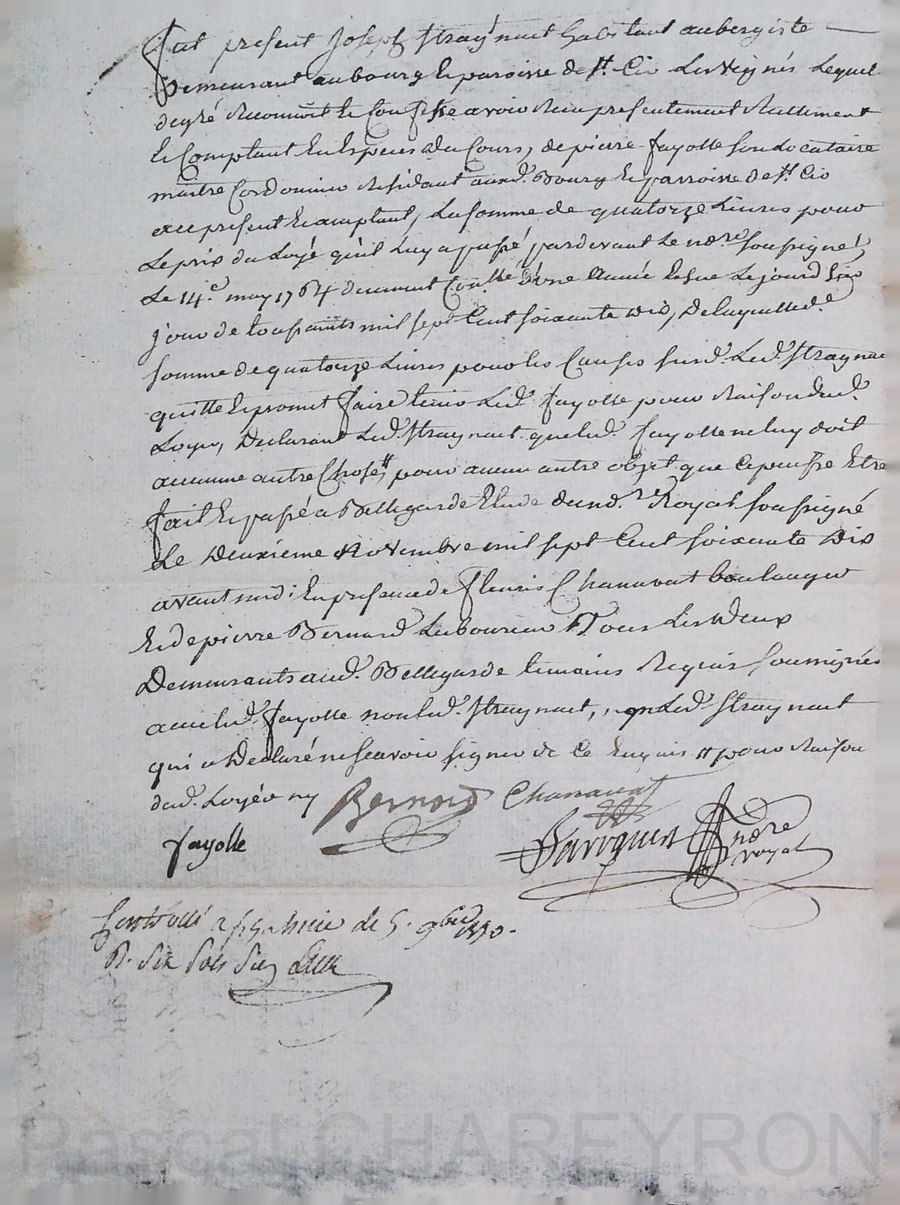 fut présent Joseph Straynart habitant aubergiste
Demeurant au bourg & paroisse de St. Cir Les Vignes Lequel
de gré Reconnoit & Confesse avoir Reçu présentement Reellement
& Comptant En Especes du Cours, de pierre fayolle son Locataire
maitre Cordonnier Résidant aud. Bourg & parroisse de St. Cir
ace présent & acceptant, La somme de quatorze Livres pour
Le prix du Loyé qu'il Luy a passé pardevant Le nore. soussigné,
Le 14e. may 1764 duement Conllé d'une année Echue Le
jour de toussaints mil sept Cent soixante dix, De Laquelle de.
somme de quatorze Livres pour les Causes susd. Led. Straynart
quitte & promet faire tenir Led. fayolle pour Raison dud.
Loyer, Declarant Led. Straynart que Led. fayolle ne luy doit
aucunne autre Chose, pour aucun autre objet que Ce puisse Etre
fait & passé a Bellegarde Etude dud. nore Royal soussigné
Le Deuxième Novembre mil sept Cent soixante Dix
avant midi En présence de fleuris Chanavat boulanger
& de pierre Bernard Laboureur Tous Les Deux
Demeurants aud. Bellegarde temoins Requis soussignés
avec Led. fayolle non Led. Straynart, Led. Straynart
qui a Declaré ne sçavoir signer de Ce Enquis # pour Raison
dud. Loyér ny
Bernard Chanavat
fayolle
nore
royal
de 5. 9bre 1770.
R. Six sols Six
Pascal CHAREYRON